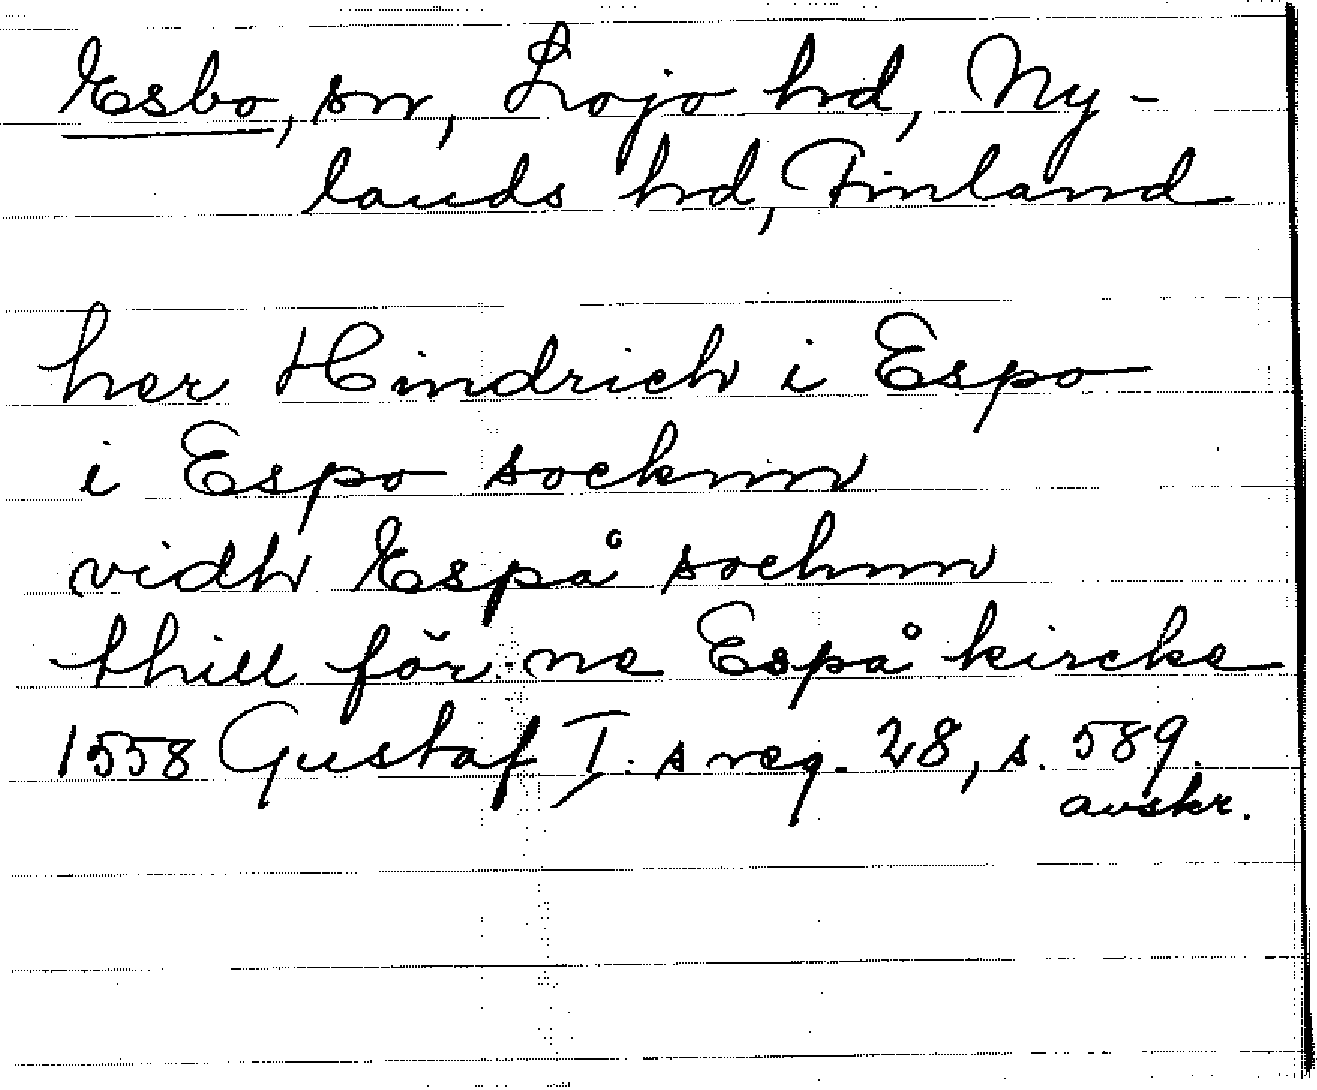 Esbo, sn, Lojo hrd, Ny-
lands hrd, Finland
her Hindrich i Espo
i Espo socknn
vidh Espå sochnn
thill för:ne Espå kircke
1558 Gustaf I:s reg. 28, s. 589.
avskr.